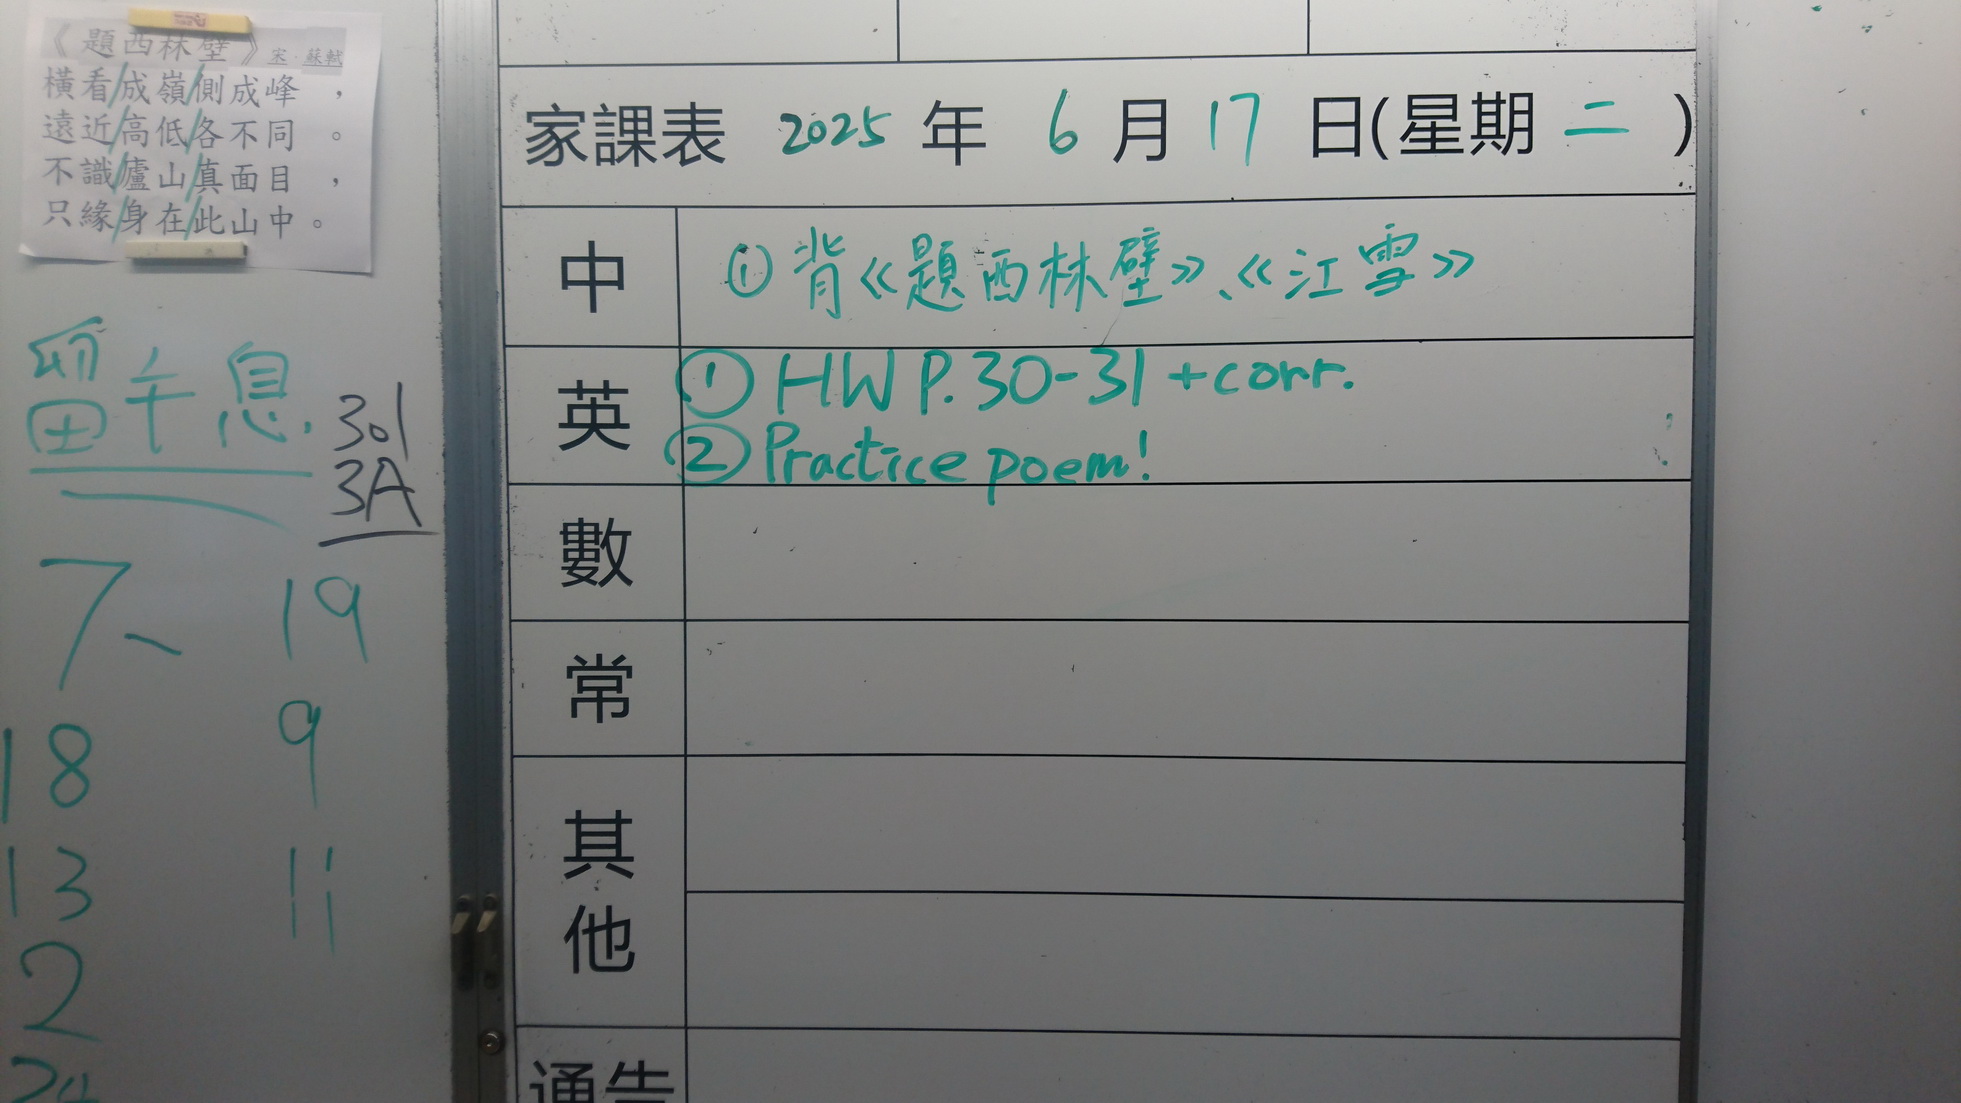 《題西林壁》宋·蘇軾
橫看/成嶺/側成峰，
遠近/高低/各不同。
不識/廬山/真面目，
只緣/身在/此山中。
留午息.
301
3A
7、 19
18 9
13 11
2
24
家課表 2025 年 6 月 17 日(星期 二 )
中 ① 背《題西林壁》、《江雪》
英 ① HW P.30-31 + corr.
② Practice poem!
數
常
其他
通告